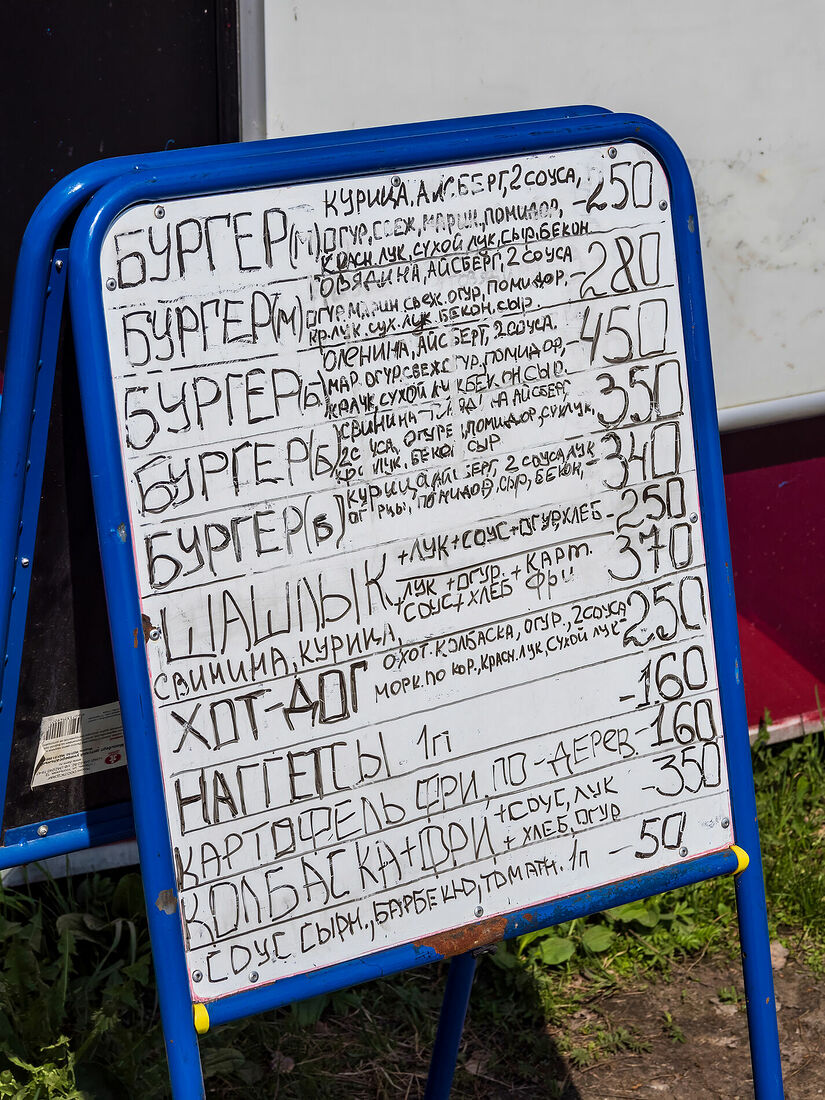 БУРГЕР(М) КУРИЦА, АЙСБЕРГ, 2 СОУСА, -250
ОГУР, СВЕЖ, МАРИН, ПОМИДОР,
КРАСН.ЛУК, СУХОЙ ЛУК, СЫР, БЕКОН.
БУРГЕР(М) ГОВЯДИНА, АЙСБЕРГ, 2 СОУСА -280
ОГУР.МАРИН СВЕЖ. ОГУР, ПОМИДОР,
КР.ЛУК, СУХ. ЛУК, БЕКОН, СЫР.
БУРГЕР(Б) ОЛЕНИНА, АЙСБЕРГ, 2 СОУСА. -450
МАР. ОГУР СВЕЖ ОГУР, ПОМИДОР,
КР.ЛУК, СУХОЙ ЛУК БЕКОН СЫР.
БУРГЕР(Б) СВИНИНА-ГОВЯДИНА АЙСБЕРГ, 350
2 СОУСА, ОГУРЕЦ, ПОМИДОР, СУХ ЛУК,
ЛУК, БЕКОН СЫР.
БУРГЕР(Б) КУРИЦА АЙСБЕРГ, 2 СОУСА, ЛУК -340
ОГУРЦЫ, ПОМИДОР, СЫР, БЕКОН,
ШАШЛЫК +ЛУК+СОУС+ОГУР, ХЛЕБ -250
+ЛУК + ОГУР. + КАРТ. 370
+СОУС+ ХЛЕБ ФРИ
СВИНИНА, КУРИЦА,
ХОТ-ДОГ ОХОТ. КОЛБАСКА, ОГУР., 2 СОУСА -250
МОРК. ПО КОР., КРАСН.ЛУК, СУХОЙ ЛУК
НАГГЕТСЫ 1П -160
КАРТОФЕЛЬ ФРИ, ПО-ДЕРЕВ -160
КОЛБАСКА+ФРИ +СОУС, ЛУК -350
+ ХЛЕБ, ОГУР
СОУС СЫРН., БАРБЕКЮ, ТОМАТН. 1П -50